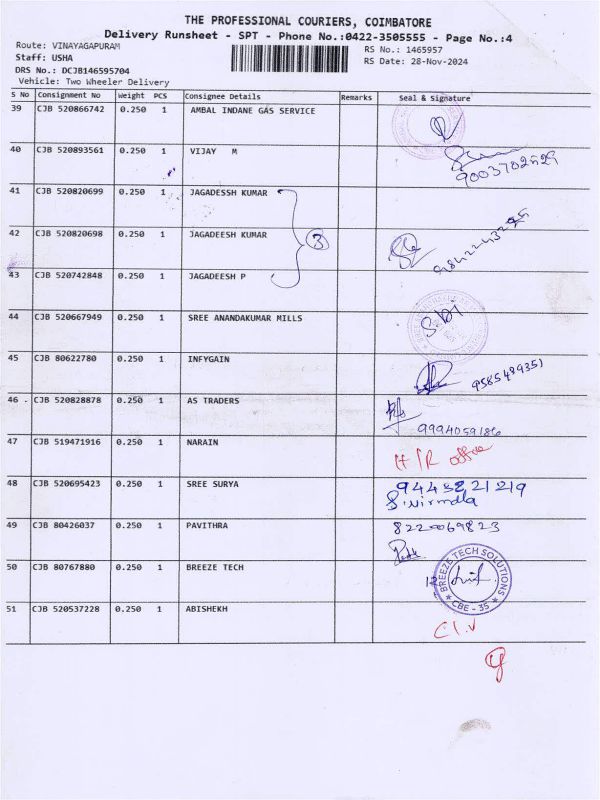 THE PROFESSIONAL COURIERS, COIMBATORE
Delivery Runsheet - SPT - Phone No.:0422-3505555 - Page No.:4
Route: VINAYAGAPURAM
RS No.: 1465957
Staff: USHA
RS Date: 28-Nov-2024
DRS No.: DCJB146595704
Vehicle: Two Wheeler Delivery
S No Consignment No Weight PCS Consignee Details Remarks Seal & Signature
39 CJB 520866742 0.250 1 AMBAL INDANE GAS SERVICE
40 CJB 520893561 0.250 1 VIJAY M
9003702529
41 CJB 520820699 0.250 1 JAGADESSH KUMAR
42 CJB 520820698 0.250 1 JAGADEESH KUMAR 3
43 CJB 520742848 0.250 1 JAGADEESH P
44 CJB 520667949 0.250 1 SREE ANANDAKUMAR MILLS
45 CJB 80622780 0.250 1 INFYGAIN
46 . CJB 520828878 0.250 1 AS TRADERS
9994059186
47 CJB 519471916 0.250 1 NARAIN
H/R office
48 CJB 520695423 0.250 1 SREE SURYA 9443221219
S.Nirmala
49 CJB 80426037 0.250 1 PAVITHRA 8220069823
50 CJB 80767880 0.250 1 BREEZE TECH
BREEZE TECH SOLUTIONS
★ CBE - 35 ★
51 CJB 520537228 0.250 1 ABISHEKH